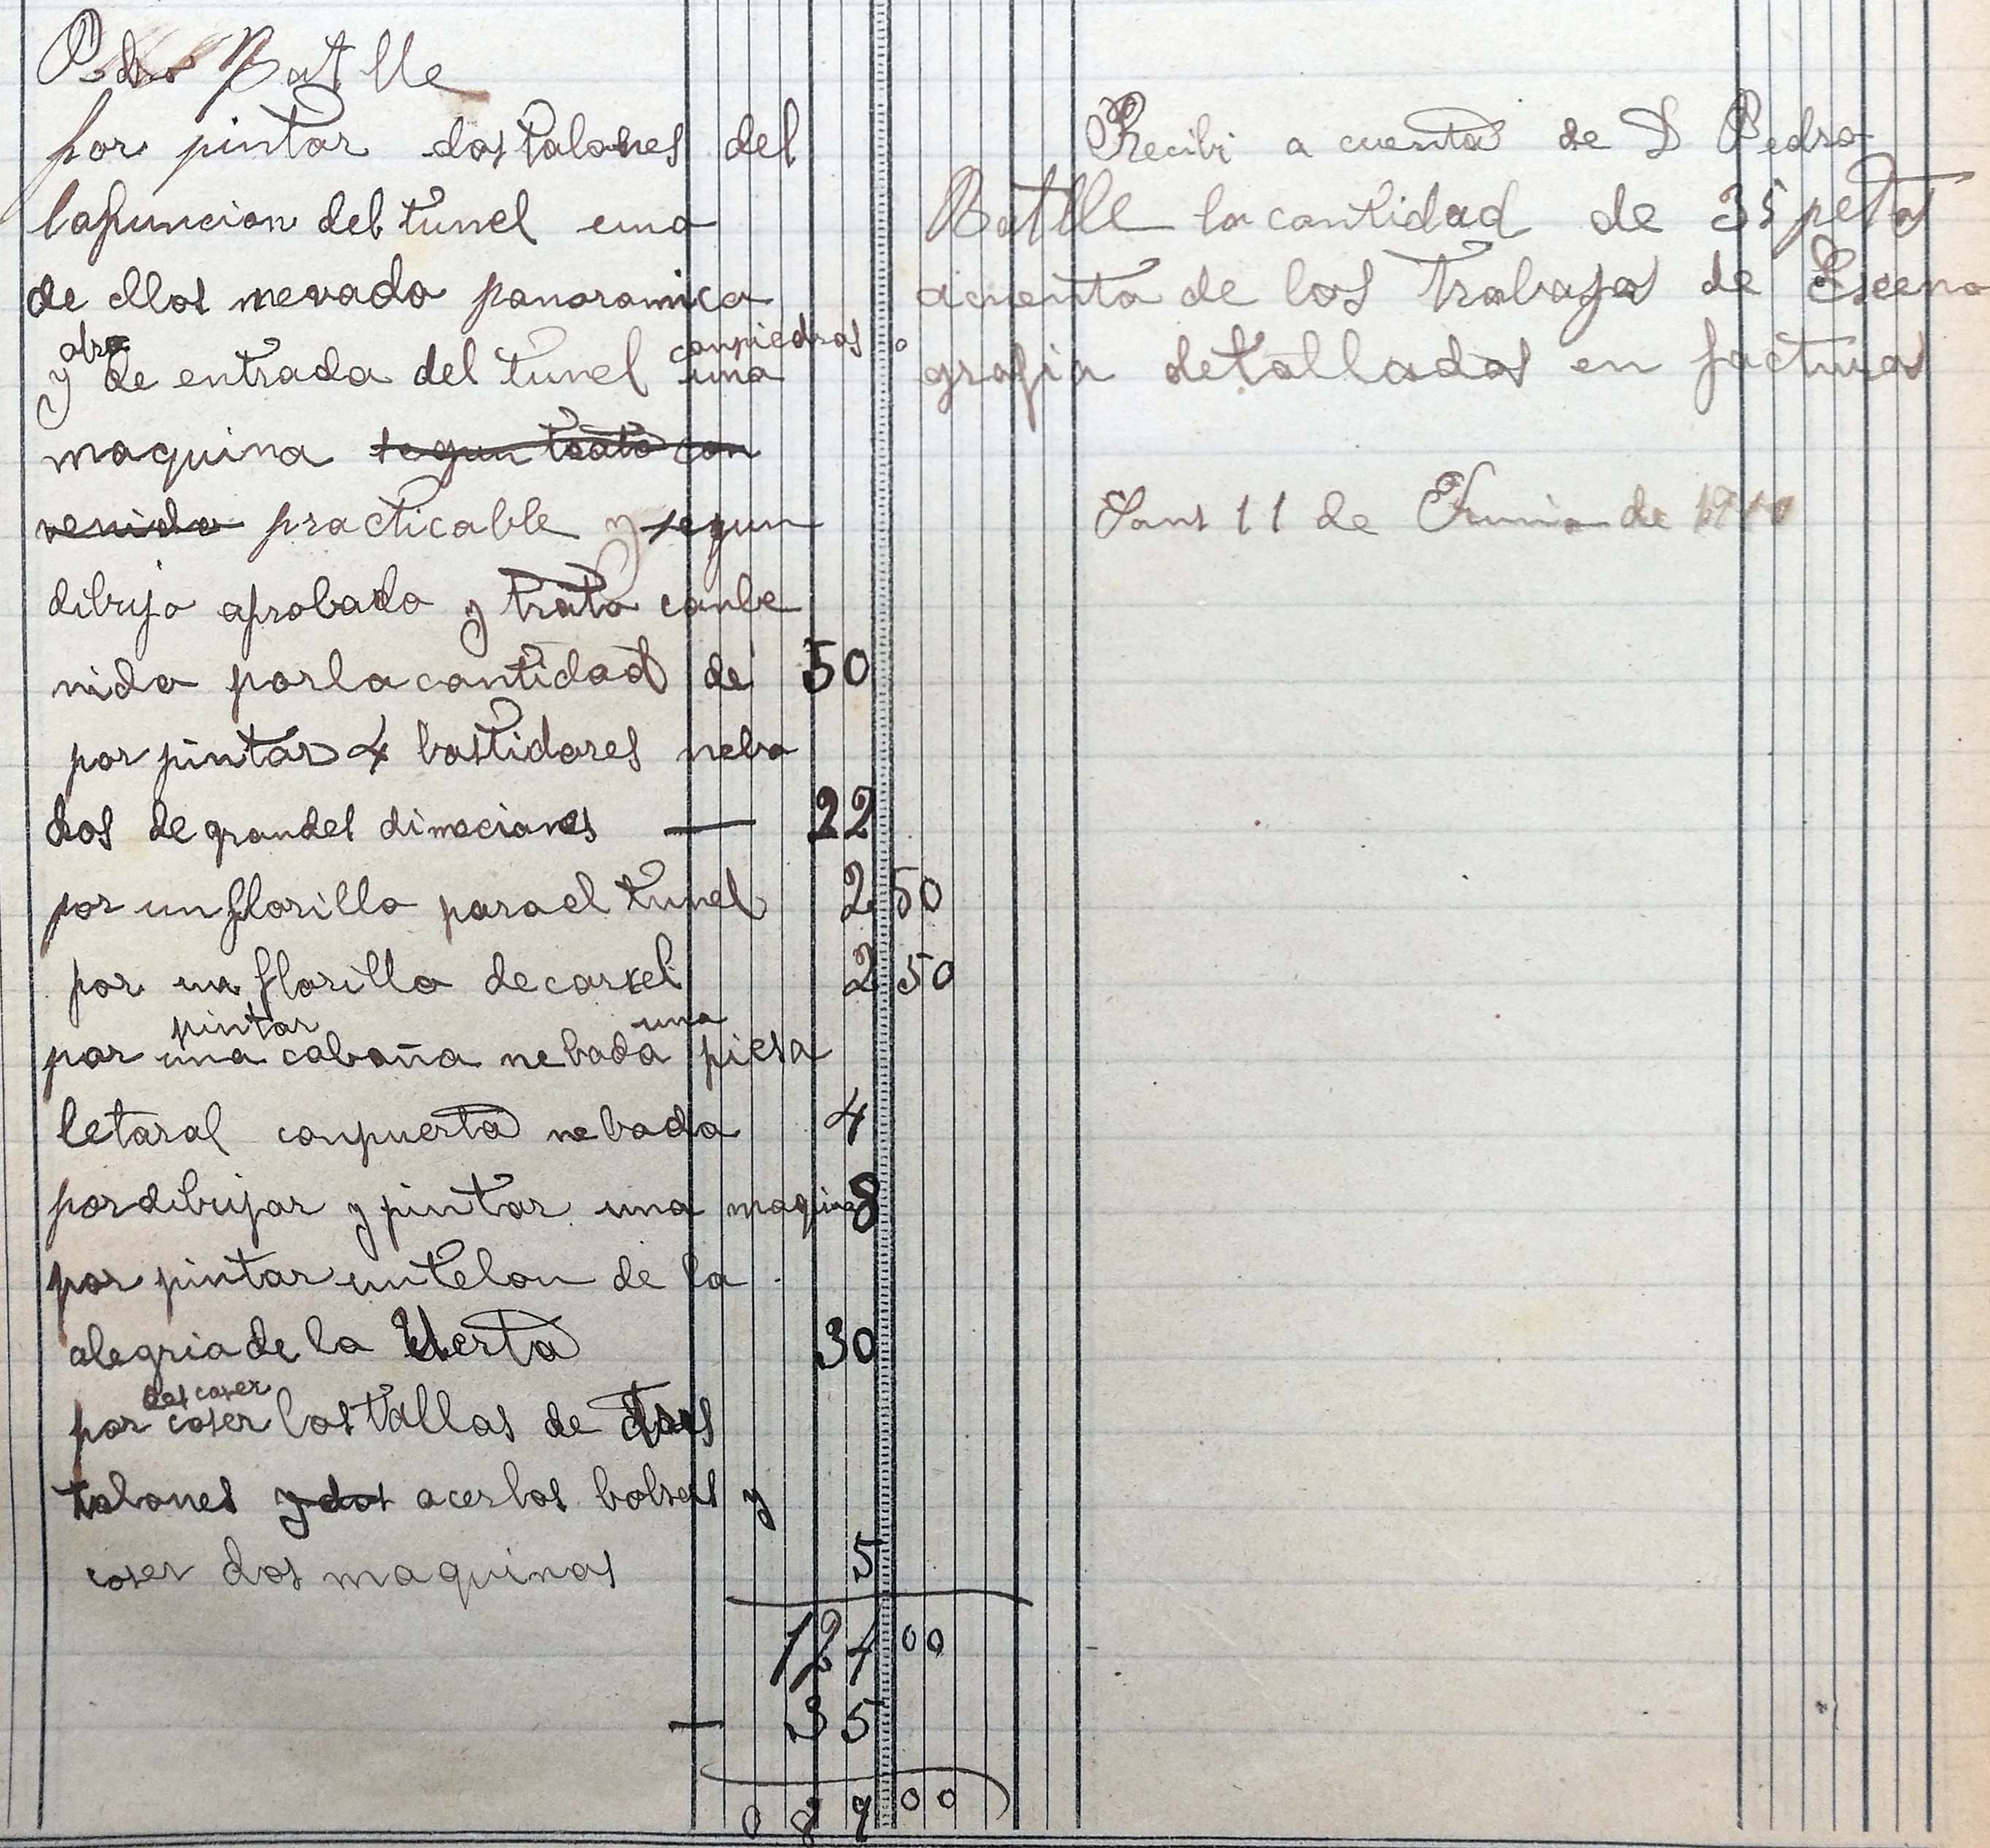 Pedro Batlle
por pintar dos talones del
lafuncion del tunel una
de ellos nevado panoramica
y otro de entrada del tunel con piedras una
maquina segun trato con
venido practicable y segun
dibujo aprobado y trato conbe
nido por la cantidad de 50
por pintar 4 bastidores neba
dos de grandes dimeciones — 22
por un florillo para el tunel 2 50
por un florillo de carxel 2 50
por pintar una cabaña nebada una piesa
letaral con puerta nebada 4
por dibujar y pintar una maquina 8
por pintar un telon de la
alegria de la Uerta 30
por descoser coser las tallas de tres
talones y dos acerlos bolses y
coser dos maquinas 5
124 00
— 35
089 00
Recibi a cuenta de D Pedro
Batlle la cantidad de 35 petas
acuenta de los trabajos de Esceno
grafia detallados en facturas
Sans 11 de Junio de 1910